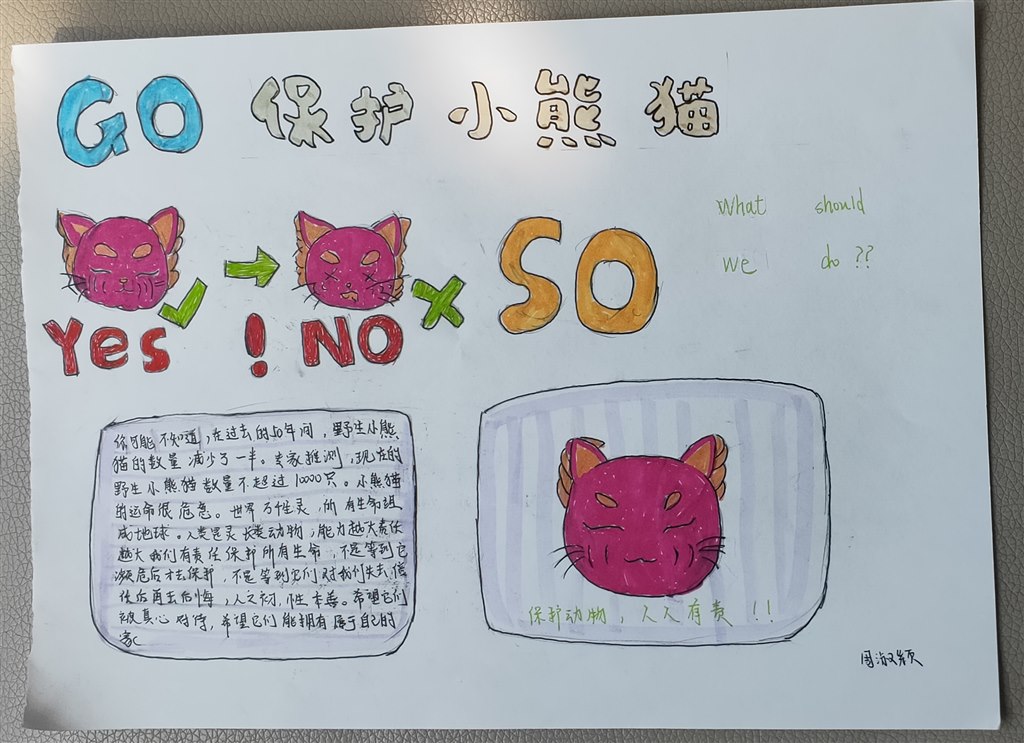 GO 保护 小熊猫
What should
we do ??
SO
Yes ! NO
你可能不知道,在过去的50年间,野生小熊
猫的数量减少了一半。专家推测,现在的
野生小熊猫数量不超过10000只。小熊猫
的运命很危急。世界万性灵,所有生命组
成地球。人类是灵长类动物,能力越大责任
越大我们有责任保护所有生命,不是等到它
濒危后才去保护,不是等到它们对我们失去信
任后再去后悔,人之初,性本善。希望它们
被真心对待,希望它们能拥有属于自己的
家
保护动物,人人有责!!
周淑颖